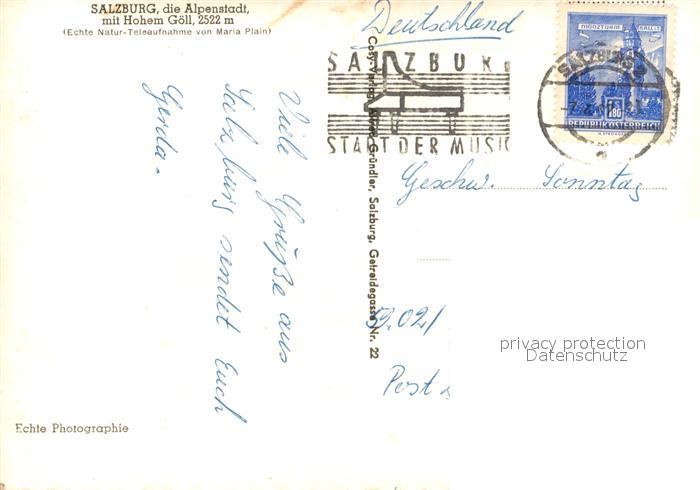 SALZBURG, die Alpenstadt,
mit Hohem Göll, 2522 m
(Echte Natur-Teleaufnahme von Maria Plain)
Viele Grüße aus
Salzburg sendet Euch
Gerda.
Echte Photographie
Cosy-Verlag Alfred Gründler, Salzburg, Getreidegasse Nr. 22
Deutschland
SALZBURG
STADT DER MUSIK
MÜNZTURM HALL I. T.
1.80
REPUBLIK ÖSTERREICH
SALZBURG 2
Geschw. Sonntag
Post
privacy protection
Datenschutz